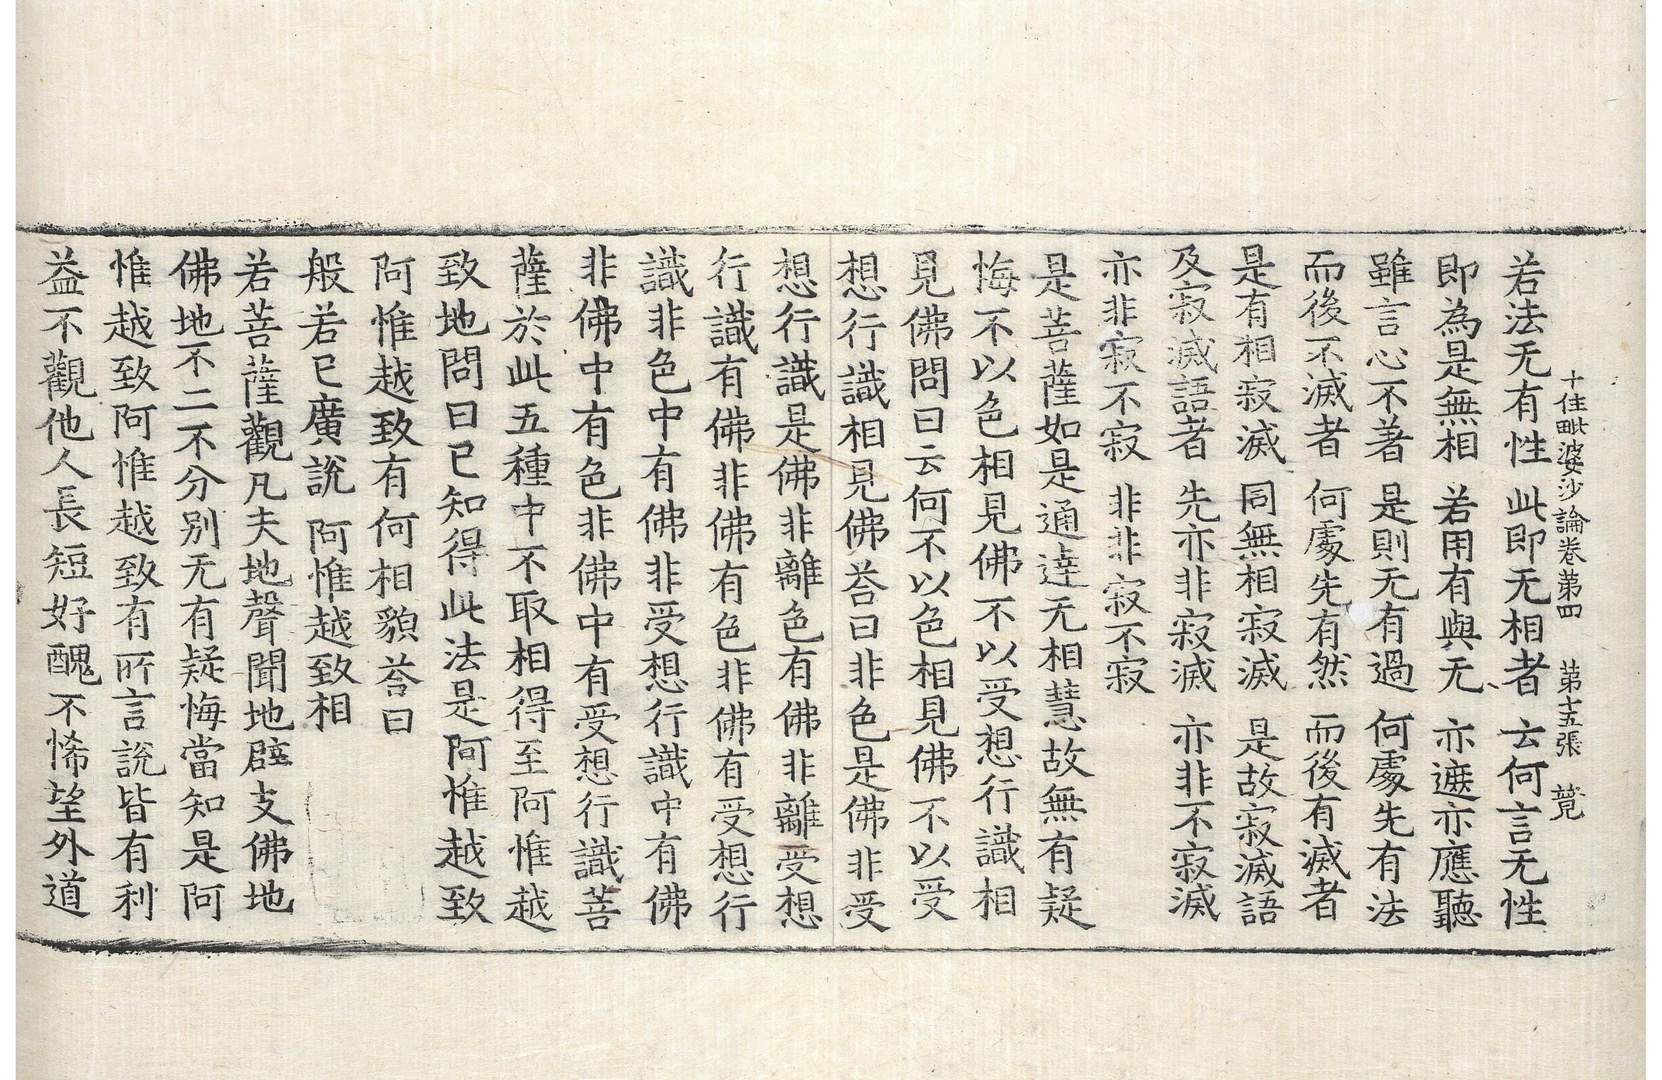 十住毗婆沙論卷第四　第十五張　莧
若法无有性　此即无相者　云何言无性
即為是無相　若用有與无　亦遮亦應聽
雖言心不著　是則无有過　何處先有法
而後不滅者　何處先有然　而後有滅者
是有相寂滅　同無相寂滅　是故寂滅語
及寂滅語者　先亦非寂滅　亦非不寂滅
亦非寂不寂　非非寂不寂
是菩薩如是通達无相慧故無有疑
悔不以色相見佛不以受想行識相
見佛問曰云何不以色相見佛不以受
想行識相見佛荅曰非色是佛非受
想行識是佛非離色有佛非離受想
行識有佛非佛有色非佛有受想行
識非色中有佛非受想行識中有佛
非佛中有色非佛中有受想行識菩
薩於此五種中不取相得至阿惟越
致地問曰已知得此法是阿惟越致
阿惟越致有何相貌荅曰
般若已廣說　阿惟越致相
若菩薩觀凡夫地聲聞地辟支佛地
佛地不二不分別无有疑悔當知是阿
惟越致阿惟越致有所言說皆有利
益不觀他人長短好醜不悕望外道